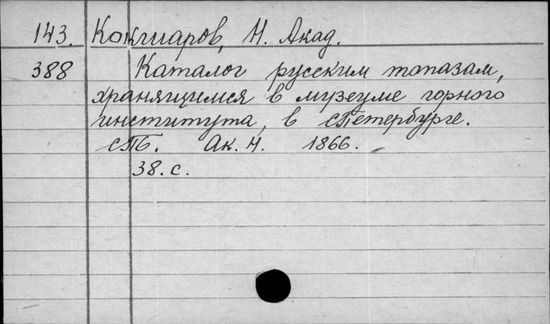 143. Кокшаров, Н. Акад.
388 Каталог русским топазам,
хранящимся в музеуме горного
института, в С. Петербурге.
СПБ. Ак. Н. 1866.
38. с.